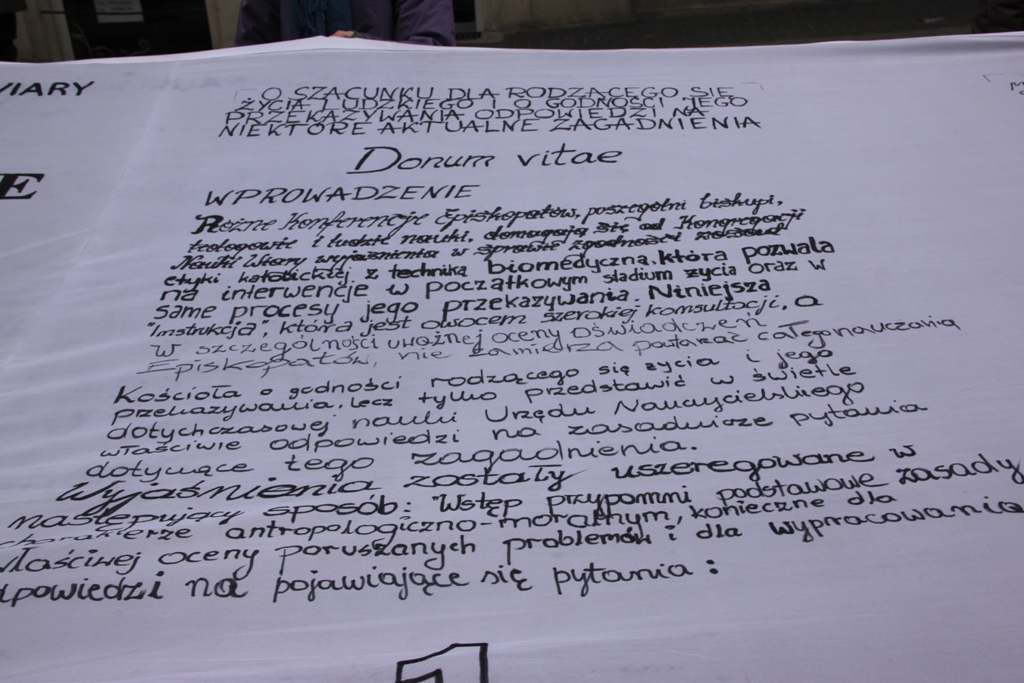 WIARY
O SZACUNKU DLA RODZĄCEGO SIĘ
ŻYCIA LUDZKIEGO I O GODNOŚCI JEGO
PRZEKAZYWANIA ODPOWIEDZI NA
NIEKTÓRE AKTUALNE ZAGADNIENIA
E
Donum vitae
WPROWADZENIE
Różne Konferencje Episkopatów, poszczególni biskupi,
teologowie i ludzie nauki, domagają się od Kongregacji
Nauki Wiary wyjaśnienia w sprawie zgodności zasad
etyki katolickiej z techniką biomedyczną, która pozwala
na interwencje w początkowym stadium życia oraz w
same procesy jego przekazywania. Niniejsza
"Instrukcja", która jest owocem szerokiej konsultacji, a
w szczególności uważnej oceny Oświadczeń
Episkopatów, nie zamierza powtarzać całego nauczania
Kościoła o godności rodzącego się życia i jego
przekazywania, lecz tylko przedstawić w świetle
dotychczasowej nauki Urzędu Nauczycielskiego
właściwie odpowiedzi na zasadnicze pytania
dotyczące tego zagadnienia.
Wyjaśnienia zostały uszeregowane w
następujący sposób: "Wstęp przypomni podstawowe zasady
charakterze antropologiczno-moralnym, konieczne dla
właściwej oceny poruszanych problemów i dla wypracowania
odpowiedzi na pojawiające się pytania:
1